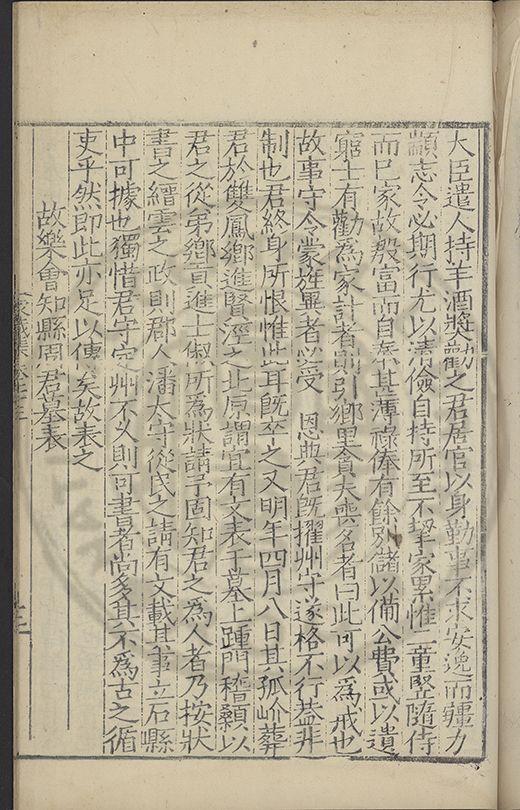 大臣遣人持羊酒奬勸之君居官以身勤事不求安逸而疆力
顓志令必期行尤以清儉自持所至不挈家累惟二童豎隨侍
而已家故殷富而自奉甚薄祿俸有餘別儲以備公費或以遺
窮士有勸爲家計者則引鄉里貪夫喪名者曰此可以爲戒也
故事守令蒙旌異者必受　恩典君旣擢州守遂格不行蓋非
制也君終身所恨惟此耳旣卒之又明年四月八日其孤岕葬
君於雙鳳鄉進賢涇之北原謂宜有文表于墓上踵門稽顙以
君之從弟鄉貢進士俶所爲狀請予固知君之爲人者乃按狀
書之縉雲之政則郡人潘太守從民之請有文載其事立石縣
中可據也獨惜君守定州不久則可書者尚多其亦爲古之循
吏乎然即此亦足以傳矣故表之
故樂會知縣周君墓表